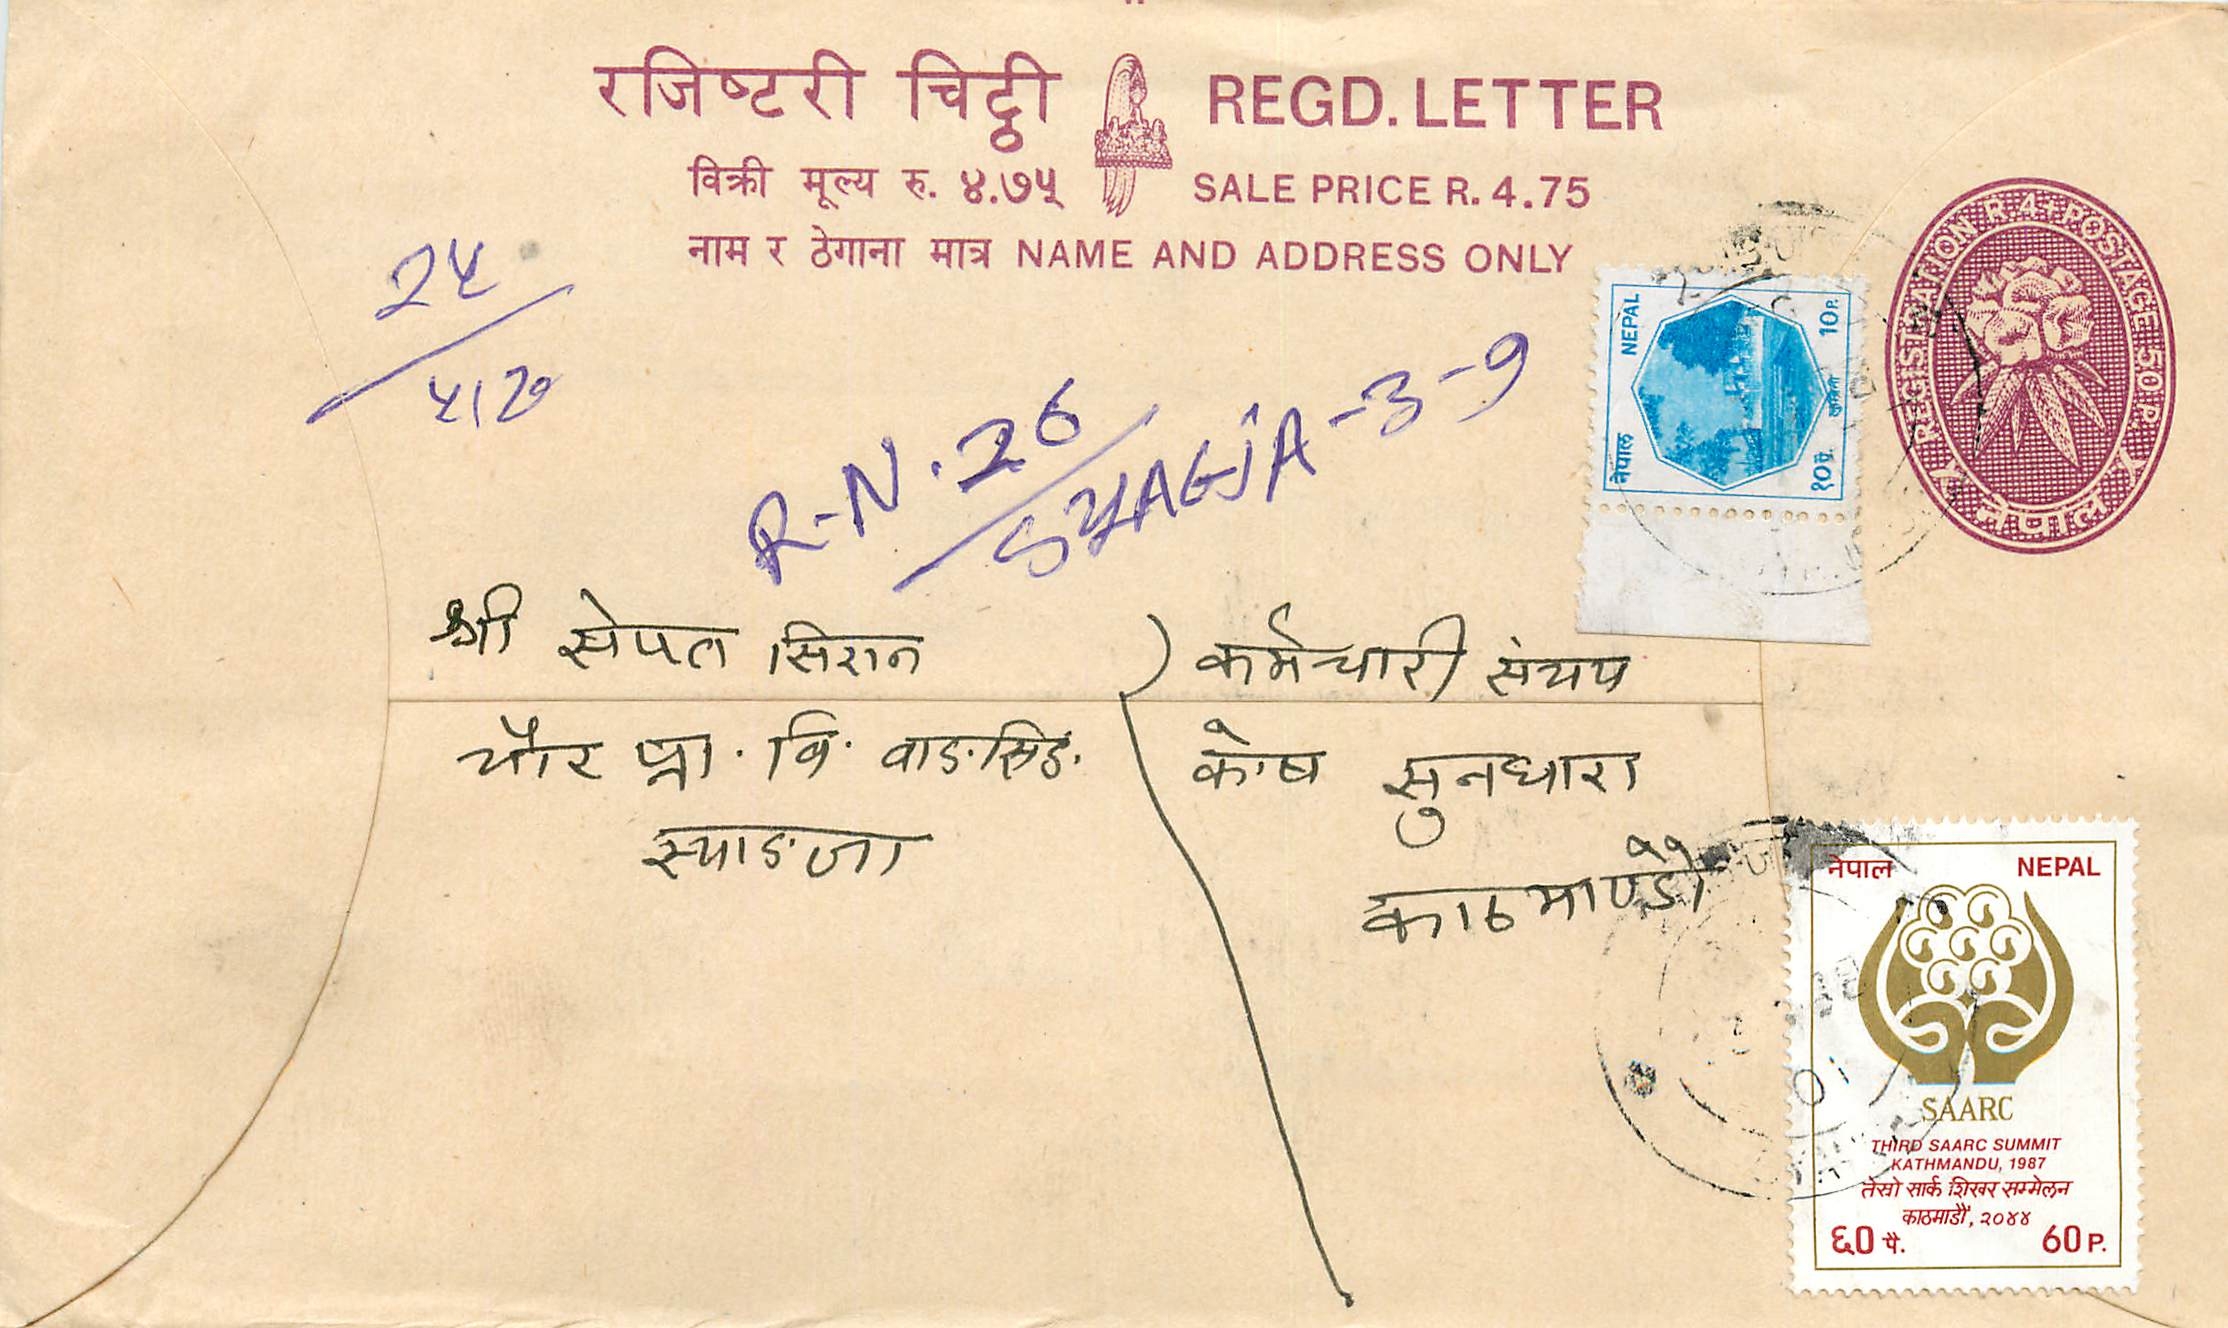 रजिष्टरी चिट्ठी REGD. LETTER
विक्री मूल्य रु. ४.७५ SALE PRICE R. 4.75
नाम र ठेगाना मात्र NAME AND ADDRESS ONLY
REGISTRATION R. 4 + POSTAGE 50 P.
नेपाल
नेपाल NEPAL
१० पै. 10 P.
२५
R-N. 26
SYAGJA-3-9
श्री सिरान
प्रा. वि. वाङसिङ
स्याङजा
कर्मचारी संचय
कोष सुनधारा
काठमाण्डौ
नेपाल NEPAL
SAARC
THIRD SAARC SUMMIT
KATHMANDU, 1987
तेस्रो सार्क शिखर सम्मेलन
काठमाडौं, २०४४
६० पै. 60 P.